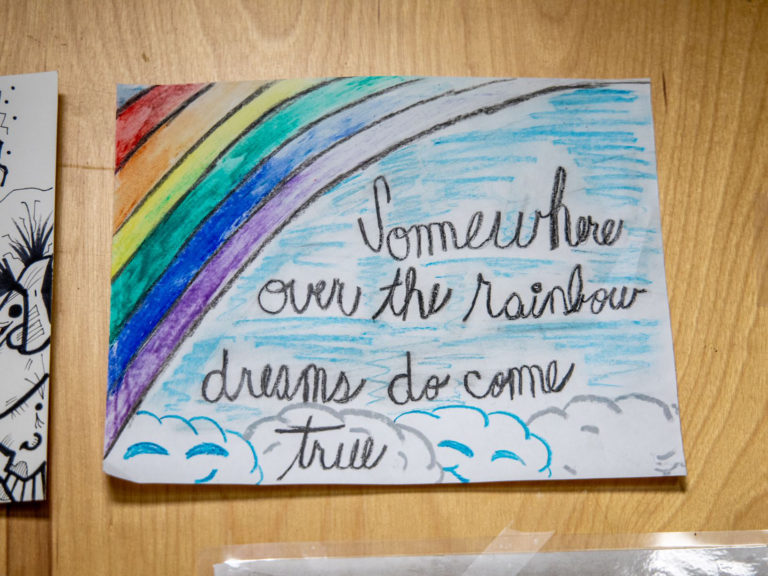 Somewhere
over the rainbow
dreams do come
true